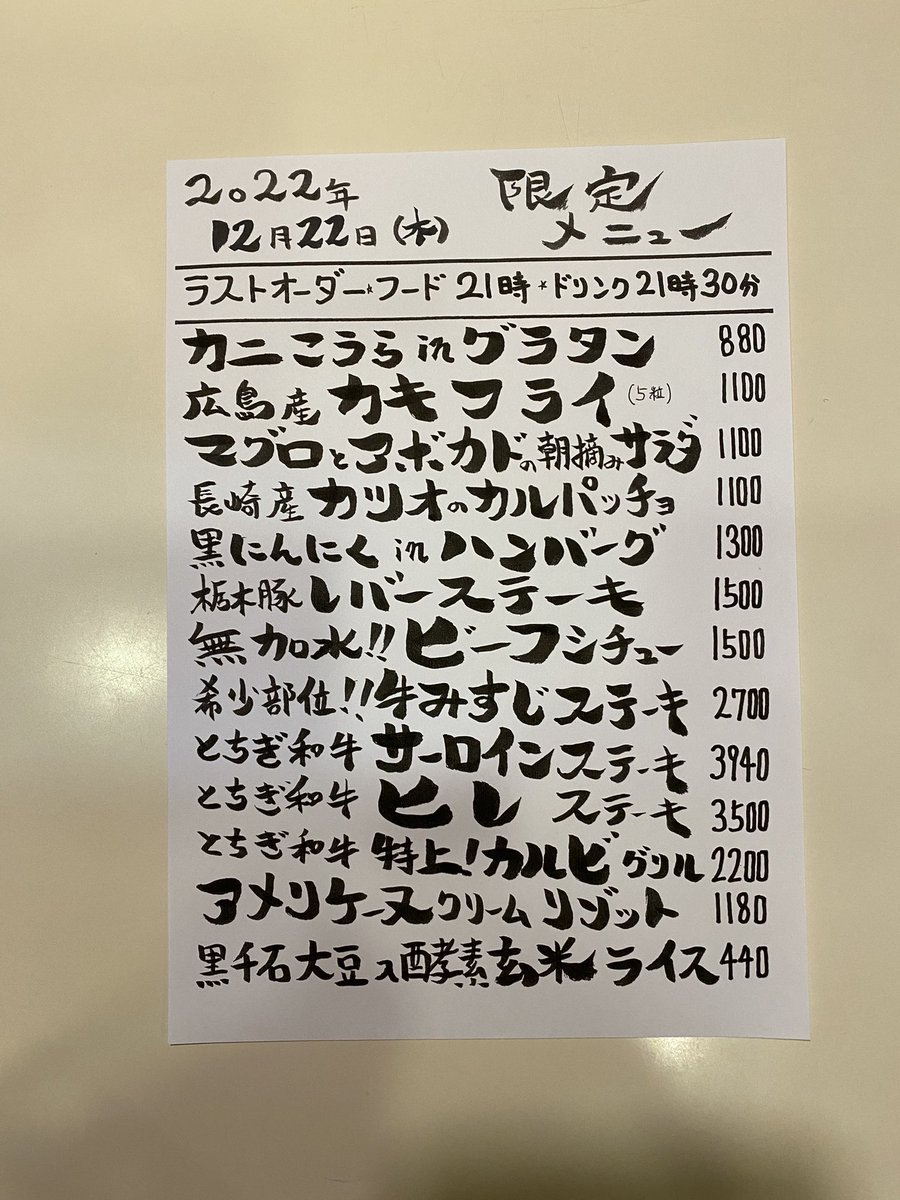 2022年 限定
12月22日(木) メニュー
ラストオーダー*フード 21時*ドリンク21時30分
カニこうらinグラタン 880
広島産 カキフライ(5粒) 1100
マグロとアボカドの朝摘みサラダ 1100
長崎産 カツオのカルパッチョ 1100
黒にんにくinハンバーグ 1300
栃木豚レバーステーキ 1500
無加水!!ビーフシチュー 1500
希少部位!!牛みすじステーキ 2700
とちぎ和牛 サーロインステーキ 3940
とちぎ和牛 ヒレ ステーキ 3500
とちぎ和牛 特上!カルビグリル 2200
アメリケーヌクリームリゾット 1180
黒千石大豆入酵素玄米ライス 440